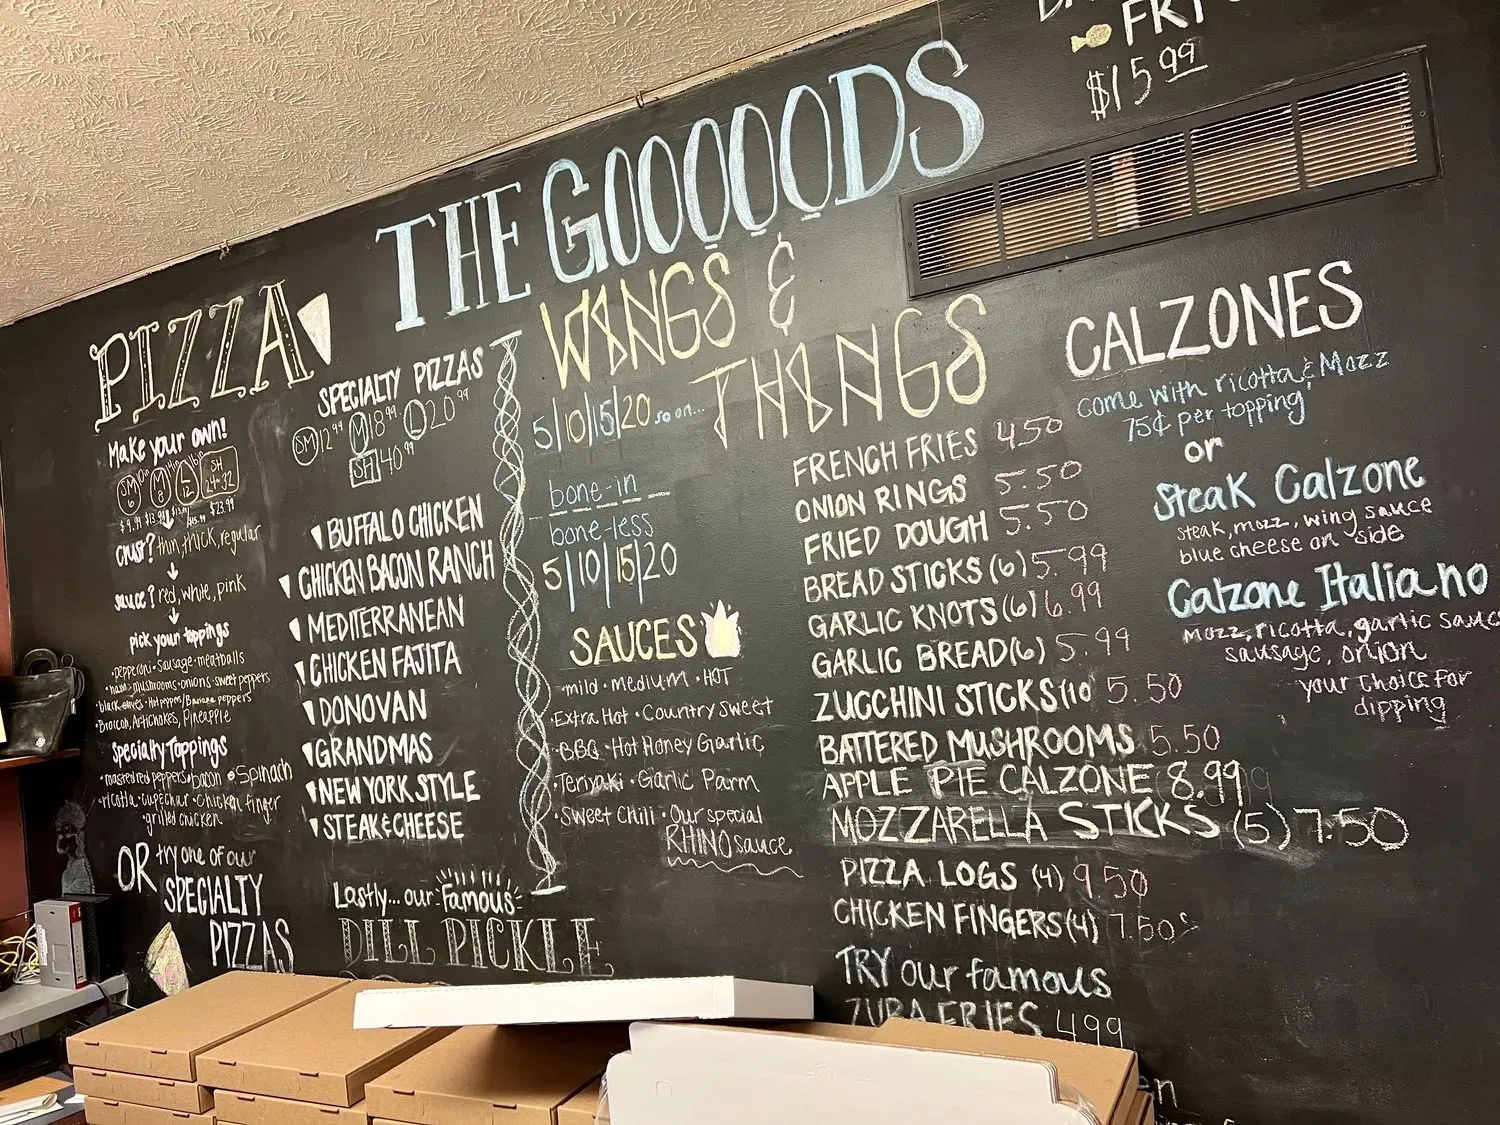 FRY
$15.99
THE GOOOOODS
PIZZA
Make your own!
SM 6 10in
M 8 14in
L 12 16in
SH 24-32
$9.99 $13.99 $23.99
crust? thin, thick, regular
sauce? red, white, pink
pick your toppings
•pepperoni •sausage •meatballs
•ham •mushrooms •onions •sweet peppers
•black olives •Hot peppers/Banana peppers
•Broccoli, Artichokes, Pineapple
Specialty Toppings
•roasted red peppers •bacon •Spinach
•ricotta •cup&char •Chicken finger
•grilled chicken
OR try one of our
SPECIALTY
PIZZAS
SPECIALTY PIZZAS
SM 12.99 M 18.99 L 20.99
SH 40.99
BUFFALO CHICKEN
CHICKEN BACON RANCH
MEDITERRANEAN
CHICKEN FAJITA
DONOVAN
GRANDMAS
NEW YORK STYLE
STEAK & CHEESE
Lastly... our Famous
DILL PICKLE
WINGS &
THINGS
5|10|15|20 so on...
bone-in
bone-less
5|10|15|20
SAUCES
•mild •medium •HOT
•Extra Hot •Country Sweet
•BBQ •Hot Honey Garlic
•Teriyaki •Garlic Parm
•Sweet Chili •Our special
RHINO sauce
FRENCH FRIES 4.50
ONION RINGS 5.50
FRIED DOUGH 5.50
BREAD STICKS (6) 5.99
GARLIC KNOTS (6) 6.99
GARLIC BREAD (6) 5.99
ZUCCHINI STICKS (10 5.50
BATTERED MUSHROOMS 5.50
APPLE PIE CALZONE 8.99
MOZZARELLA STICKS (5) 7.50
PIZZA LOGS (4) 9.50
CHICKEN FINGERS (4) 7.50
TRY our famous
ZUBA FRIES 4.99
CALZONES
come with ricotta & Mozz
75¢ per topping
or
Steak Calzone
steak, mozz, wing sauce
blue cheese on side
Calzone Italiano
Mozz, ricotta, garlic sauce
sausage, onion
your choice for
dipping